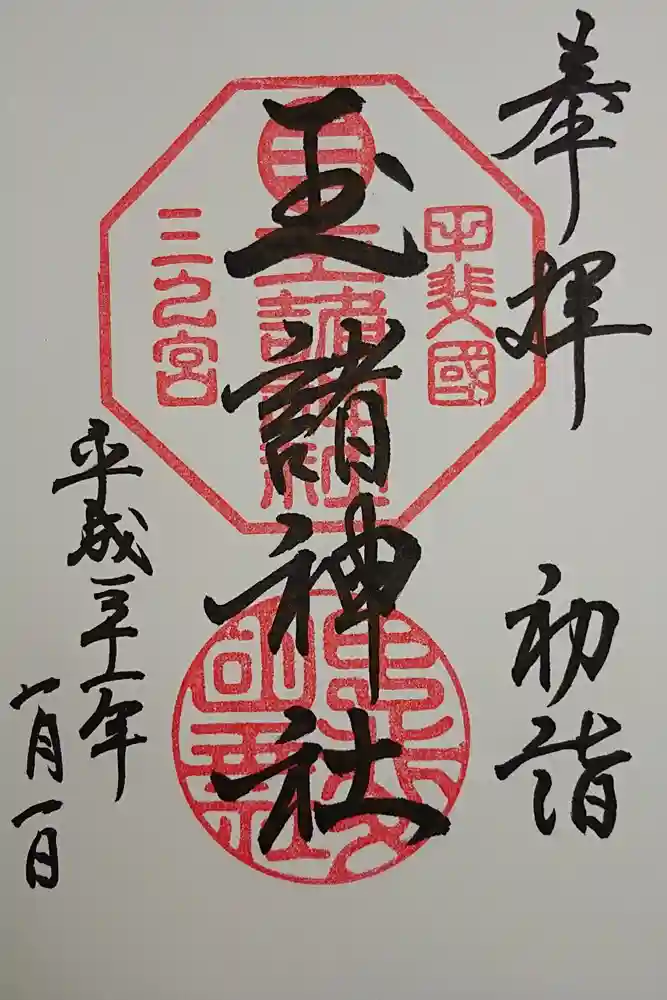 奉拝
初詣
甲斐國
玉諸神社
玉諸神社
三之宮
平成三十一年
一月一日